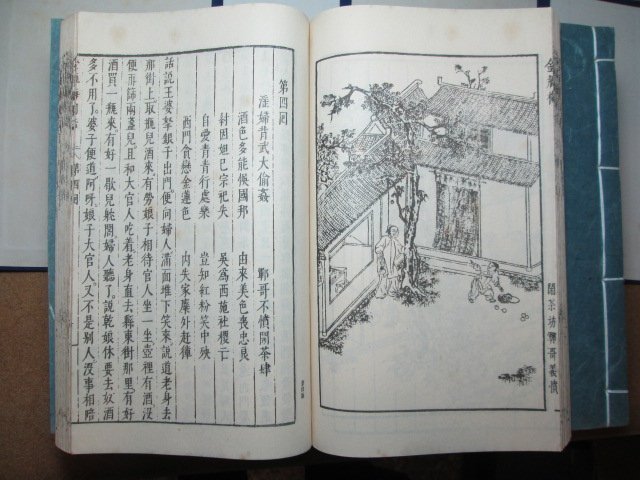 閙茶坊鄆哥義憤
第四回
淫婦背武大偷姦　鄆哥不憤閙茶肆
酒色多能悞國邦　由來美色喪忠良
紂因妲己宗祀失　吳爲西施社稷亡
自愛青青行處樂　豈知紅粉笑中殃
西門貪戀金蓮色　內失家麋外趕獐
話說王婆拏銀子出門便向婦人滿面堆下笑來說道老身去
那街上取瓶兒酒來有勞娘子相待官人坐一坐壺裡有酒沒
便再篩兩盞兒且和大官人吃着老身直去縣東街那里有好
酒買一瓶來有好一歇兒躭閣婦人聽了說乾娘休要去奴酒
多不用了婆子便道阿呀娘子大官人又不是別人沒事相陪